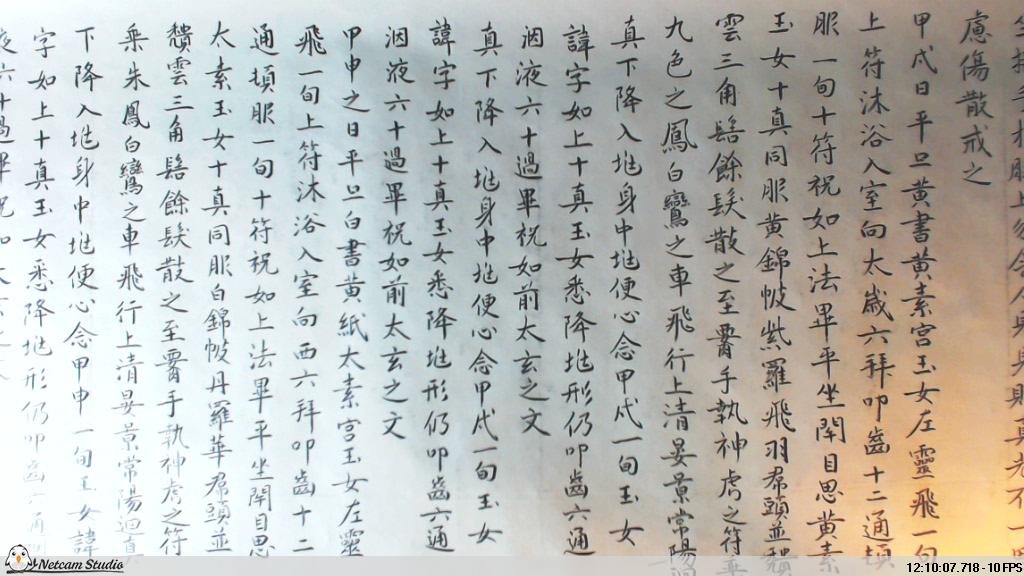 慮傷散戒之
甲戌日平旦黃書黃素宮玉女左靈飛一旬
上符沐浴入室向太歲六拜叩齒十二通頓
服一旬十符祝如上法畢平坐閉目思黃素
玉女十真同服黃錦帔紫羅飛羽帬頭並頹
雲三角髻餘髮散之至腰手執神虎之符
九色之鳳白鸞之車飛行上清晏景常陽
真下降入兆身中兆便心念甲戌一旬玉女
諱字如上十真玉女悉降兆形仍叩齒六通
咽液六十過畢祝如前太玄之文
真下降入兆身中兆便心念甲戌一旬玉女
諱字如上十真玉女悉降兆形仍叩齒六通
咽液六十過畢祝如前太玄之文
甲申之日平旦白書黃紙太素宮玉女左靈
飛一旬上符沐浴入室向西六拜叩齒十二
通頓服一旬十符祝如上法畢平坐閉目思
太素玉女十真同服白錦帔丹羅華帬頭並
頹雲三角髻餘髮散之至腰手執神虎之符
乘朱鳳白鸞之車飛行上清晏景常陽迴真
下降入兆身中兆便心念甲申一旬玉女諱
字如上十真玉女悉降兆形仍叩齒六通
Netcam Studio
12:10:07.718 - 10 FPS